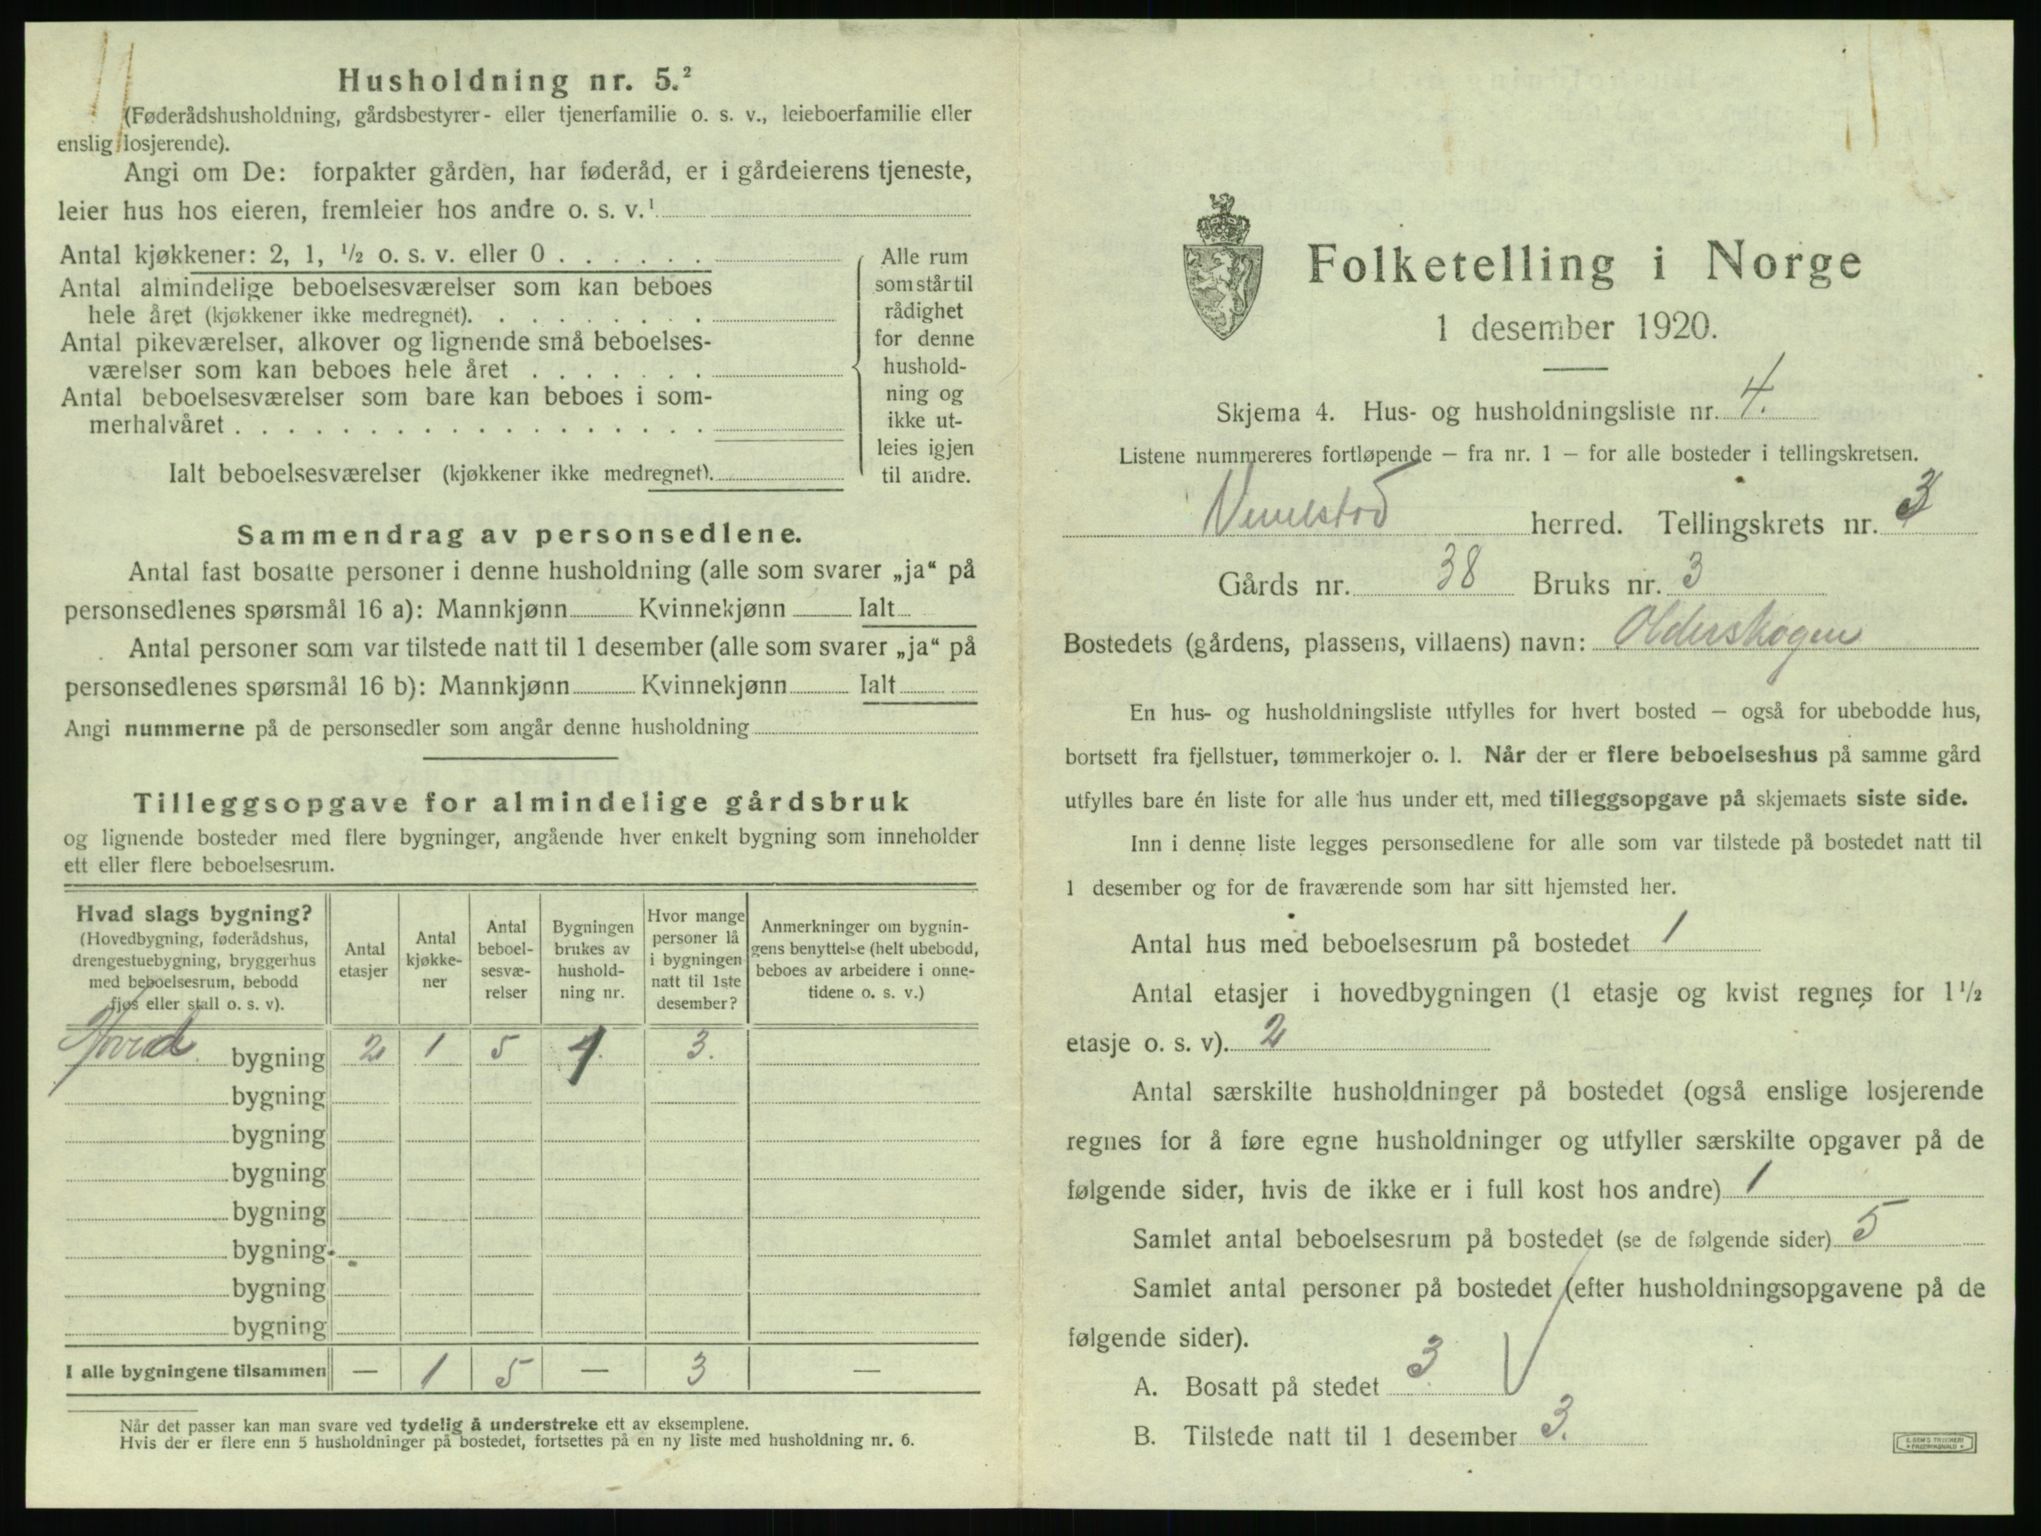 Husholdning nr. 5.²
(Føderådshusholdning, gårdsbestyrer- eller tjenerfamilie o. s. v., leieboerfamilie eller
enslig losjerende).
Angi om De: forpakter gården, har føderåd, er i gårdeierens tjeneste,
leier hus hos eieren, fremleier hos andre o. s. v.¹
Antal kjøkkener: 2, 1, ½ o. s. v. eller 0 . . . . . .
Antal almindelige beboelsesværelser som kan beboes
hele året (kjøkkener ikke medregnet). . . . . . . . .
Antal pikeværelser, alkover og lignende små beboelses-
værelser som kan beboes hele året . . . . . . .
Antal beboelsesværelser som bare kan beboes i som-
merhalvåret . . . . . . . . . . . . . . . . . .
Ialt beboelsesværelser (kjøkkener ikke medregnet).
Alle rum
som står til
rådighet
for denne
hushold-
ning og
ikke ut-
leies igjen
til andre.
Sammendrag av personsedlene.
Antal fast bosatte personer i denne husholdning (alle som svarer „ja“ på
personsedlenes spørsmål 16 a): Mannkjønn Kvinnekjønn Ialt
Antal personer som var tilstede natt til 1 desember (alle som svarer „ja“ på
personsedlenes spørsmål 16 b): Mannkjønn Kvinnekjønn Ialt
Angi nummerne på de personsedler som angår denne husholdning
Tilleggsopgave for almindelige gårdsbruk
og lignende bosteder med flere bygninger, angående hver enkelt bygning som inneholder
ett eller flere beboelsesrum.
Hvad slags bygning?
(Hovedbygning, føderådshus,
drengestuebygning, bryggerhus
med beboelsesrum, bebodd
fjøs eller stall o. s. v).
Antal
etasjer
Antal
kjøkke-
ner
Antal
beboel-
sesvæ-
relser
Bygningen
brukes av
hushold-
ning nr.
Hvor mange
personer lå
i bygningen
natt til 1ste
desember?
Anmerkninger om bygnin-
gens benyttelse (helt ubebodd,
beboes av arbeidere i onne-
tidene o. s. v.)
Hoved bygning 2 1 5 1 3.
bygning
bygning
bygning
bygning
bygning
bygning
bygning
I alle bygningene tilsammen — 1 5 — 3 —
Når det passer kan man svare ved tydelig å understreke ett av eksemplene.
Hvis der er flere enn 5 husholdninger på bostedet, fortsettes på en ny liste med husholdning nr. 6.
Folketelling i Norge
1 desember 1920.
Skjema 4. Hus- og husholdningsliste nr. 4.
Listene nummereres fortløpende — fra nr. 1 — for alle bosteder i tellingskretsen.
Vevelstad herred. Tellingskrets nr. 3
Gårds nr. 38 Bruks nr. 3
Bostedets (gårdens, plassens, villaens) navn: Olderskogen
En hus- og husholdningsliste utfylles for hvert bosted — også for ubebodde hus,
bortsett fra fjellstuer, tømmerkojer o. l. Når der er flere beboelseshus på samme gård
utfylles bare én liste for alle hus under ett, med tilleggsopgave på skjemaets siste side.
Inn i denne liste legges personsedlene for alle som var tilstede på bostedet natt til
1 desember og for de fraværende som har sitt hjemsted her.
Antal hus med beboelsesrum på bostedet 1
Antal etasjer i hovedbygningen (1 etasje og kvist regnes for 1½
etasje o. s. v). 2
Antal særskilte husholdninger på bostedet (også enslige losjerende
regnes for å føre egne husholdninger og utfyller særskilte opgaver på de
følgende sider, hvis de ikke er i full kost hos andre) 1
Samlet antal beboelsesrum på bostedet (se de følgende sider) 5
Samlet antal personer på bostedet (efter husholdningsopgavene på de
følgende sider).
A. Bosatt på stedet 3
B. Tilstede natt til 1 desember 3.